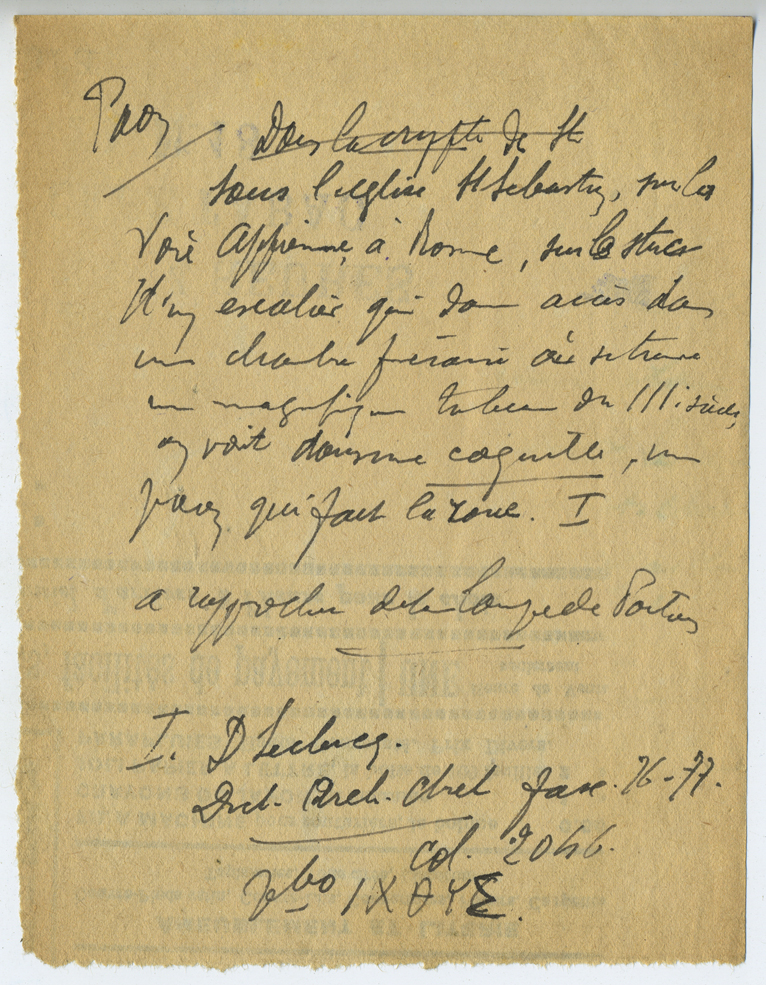 Paon
Dans la crypte de St
sous l'eglise St Sebastien, sur la
Voie Appienne, à Rome, sur le stuc
d'un escalier qui donne accès dans
une chambre funéraire où se trouve
un magnifique tableau du IIIe siècle,
on voit dans une coquille, un
paon qui fait la roue. I
a rapprocher de la lampe de Poitiers
I. D Leclercq.
Dict. Arch. chret fasc. 76-77.
col. 2046.
vbo ΙΧΘΥΣ.